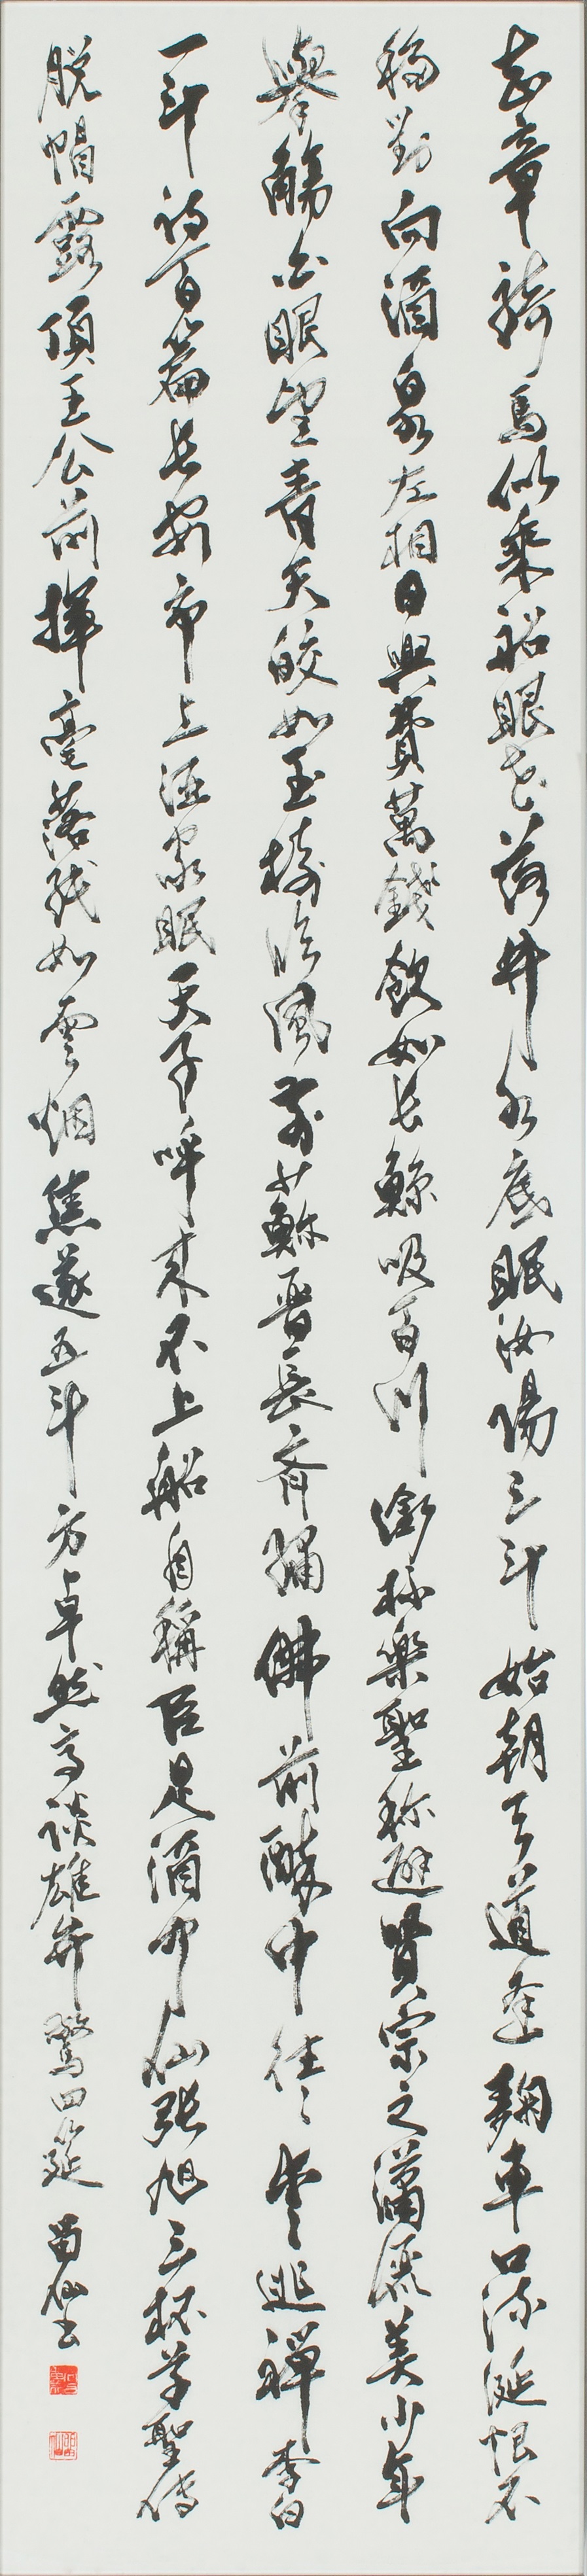 知章騎馬似乘船眼花落井水底眠汝陽三斗始朝天道逢麴車口流涎恨不
移封向酒泉左相日興費萬錢飲如長鯨吸百川銜杯樂聖称避賢宗之瀟灑美少年
舉觴白眼望青天皎如玉樹臨風前蘇晉長齊繡佛前醉中往々愛逃禪李白
一斗詩百篇長安市上酒家眠天子呼来不上船自稱臣是酒中仙張旭三杯草聖傳
脱帽露頂王公前揮毫落紙如雲烟焦遂五斗方卓然高談雄弁驚四筵 蜀仙書